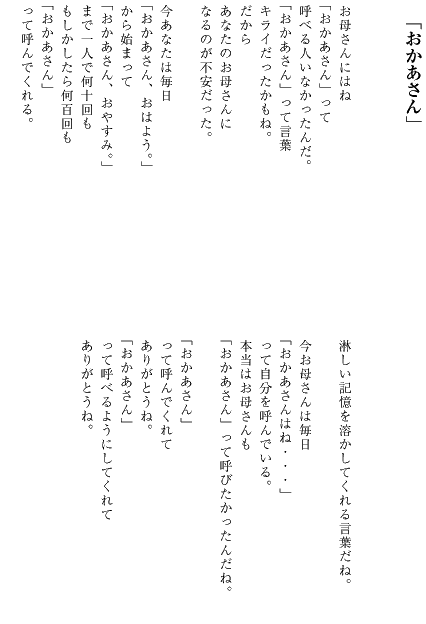 「おかあさん」
お母さんにはね
「おかあさん」って
呼べる人いなかったんだ。
「おかあさん」って言葉
キライだったかもね。
だから
あなたのお母さんに
なるのが不安だった。
今あなたは毎日
「おかあさん、おはよう。」
から始まって
「おかあさん、おやすみ。」
まで一人で何十回も
もしかしたら何百回も
「おかあさん」
って呼んでくれる。
淋しい記憶を溶かしてくれる言葉だね。
今お母さんは毎日
「おかあさんはね・・・」
って自分を呼んでいる。
本当はお母さんも
「おかあさん」って呼びたかったんだね。
「おかあさん」
って呼んでくれて
ありがとうね。
「おかあさん」
って呼べるようにしてくれて
ありがとうね。